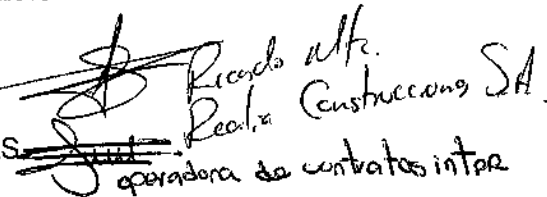 Ricardo Alfz.
Realia Construcciones SA.
S
operadora de contratos inter